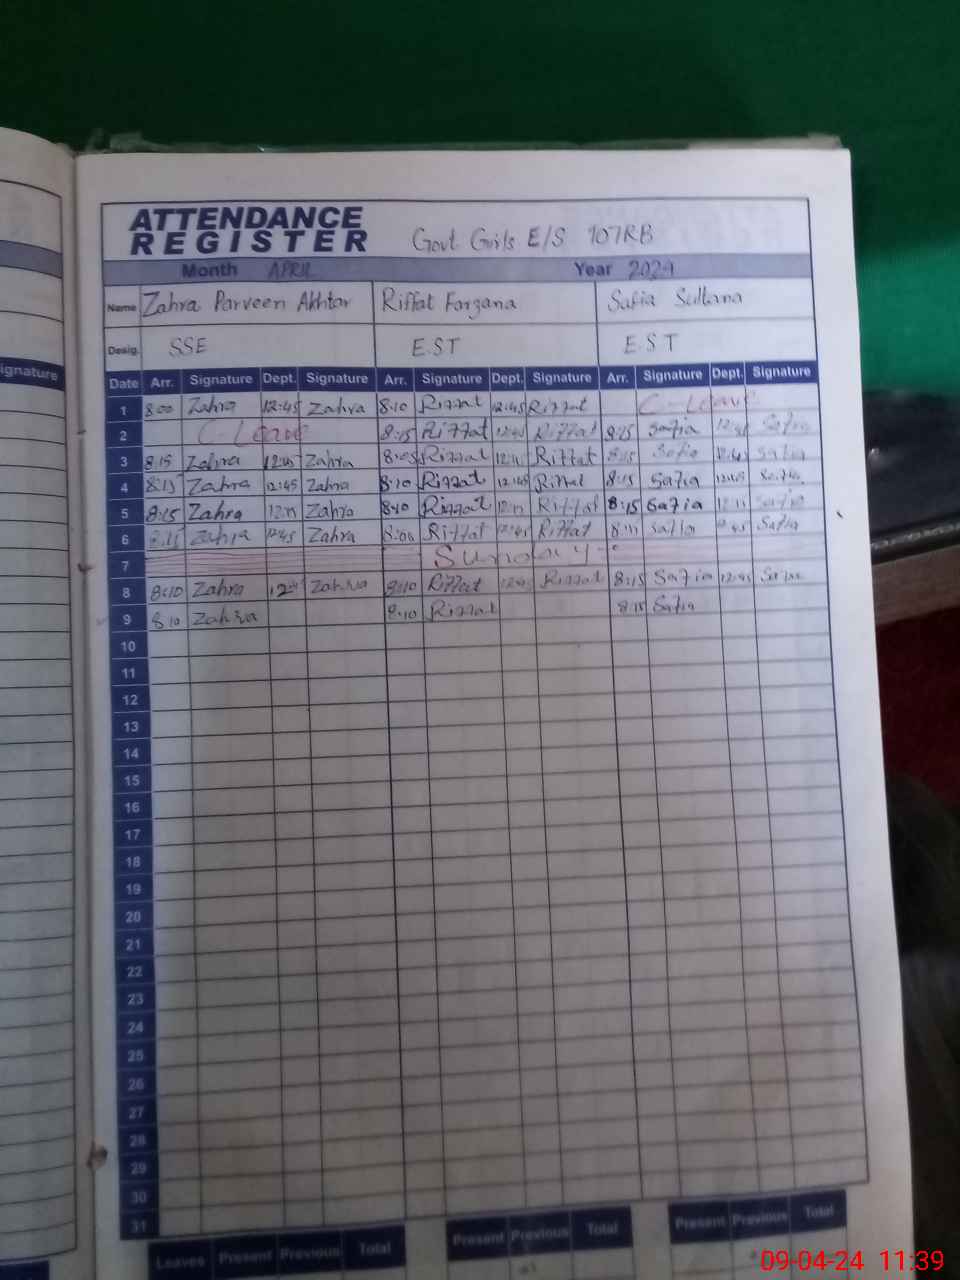 ATTENDANCE
REGISTER
Govt Girls E/S 107RB
Month APRIL Year 2024
Name Zahra Parveen Akhtar Riffat Farzana Safia Sultana
Desig. SSE E.S.T E.S.T
ignature
Date Arr. Signature Dept. Signature Arr. Signature Dept. Signature Arr. Signature Dept. Signature
1 8:00 Zahra 12:45 Zahra 8:10 Riffat 12:45 Riffat C-Leave
2 C-Leave 8:15 Riffat 12:45 Riffat 8:15 Safia Safia
3 8:15 Zahra 12:45 Zahra 8:05 Riffat Riffat 8:15 Safia 12:45 Safia
4 8:15 Zahra 12:45 Zahra 8:10 Riffat 12:45 Riffat 8:15 Safia 12:45 Safia
5 8:15 Zahra Zahra 8:10 Riffat Riffat 8:15 Safia Safia
6 Zahra 12:45 Zahra 8:00 Riffat 12:45 Riffat Safia 12:45 Safia
7 Sunday
8 8:10 Zahra Zahra 8:10 Riffat 12:45 Riffat 8:15 Safia 12:45 Safia
9 8:10 Zahra 8:10 Riffat 8:15 Safia
10
11
12
13
14
15
16
17
18
19
20
21
22
23
24
25
26
27
28
29
30
31
Leaves Present Previous Total Present Previous Total Present Previous Total
09-04-24 11:39